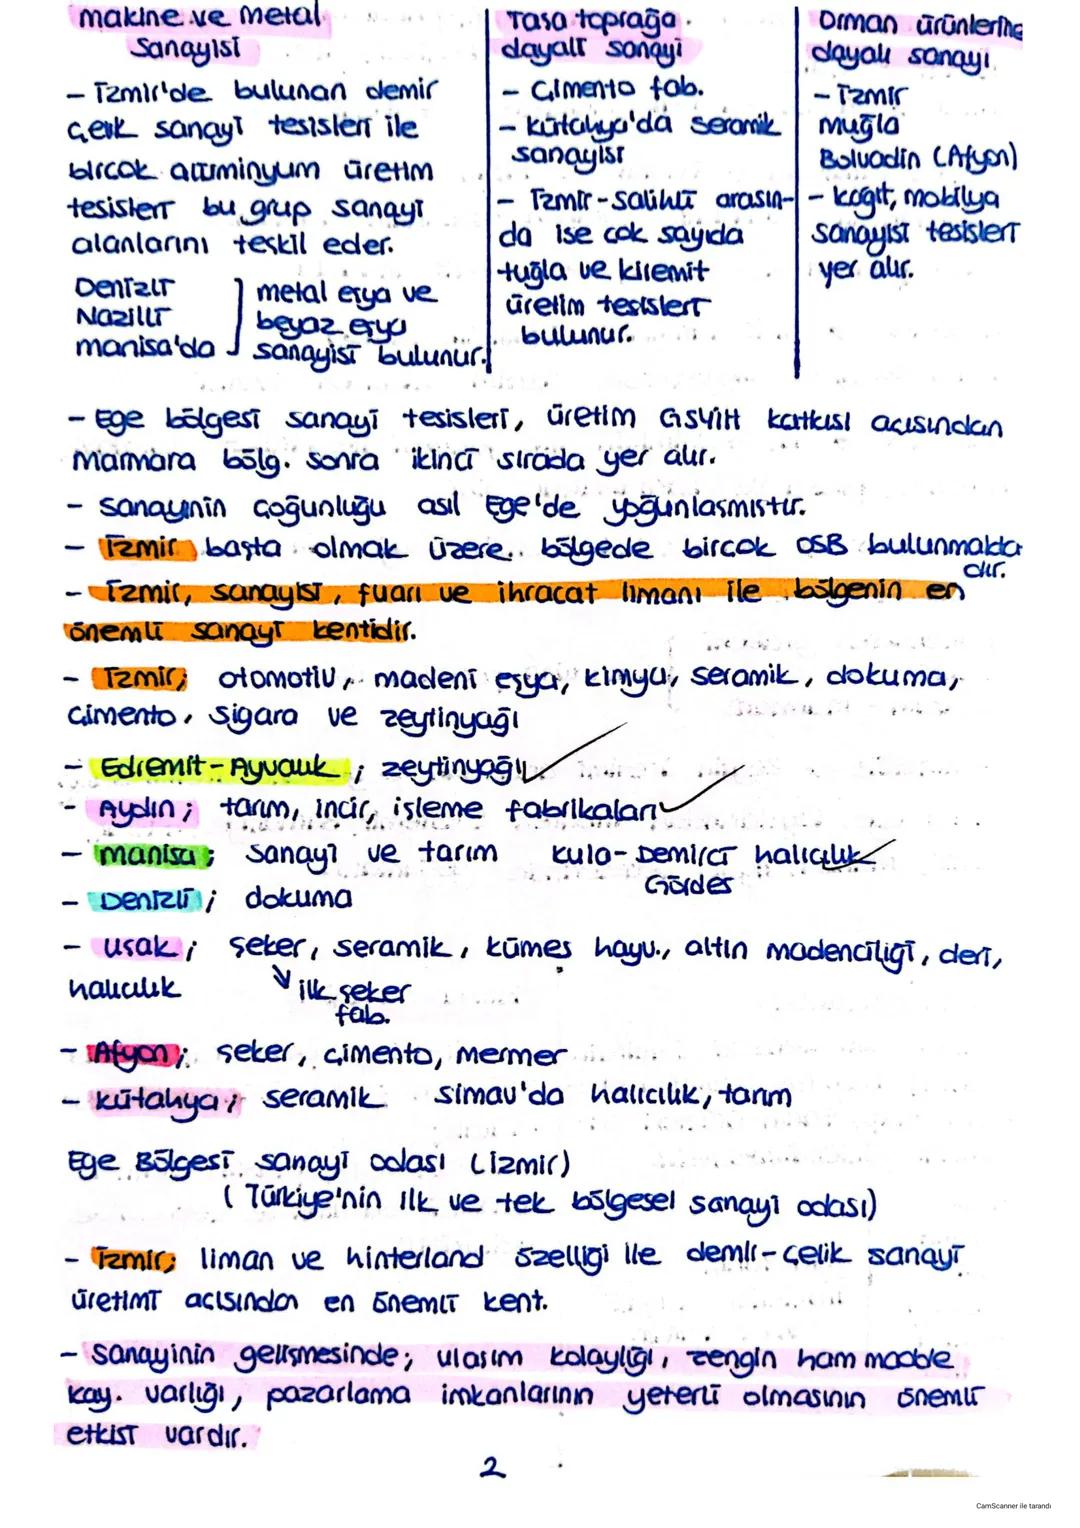 makine ve metal
Sanayisi
- İzmir'de bulunan demir
çelik sanayi tesisleri ile
birçok alüminyum üretim
tesisleri bu grup sanayi
alanlarını teşkil eder.
Denizli
Nazilli
manisa'da
metal eşya ve
beyaz eşya
sanayisi bulunur.
Taşa toprağa
dayalı sanayi
- Çimento fab.
- Kütahya'da seramik
sanayisi
- İzmir-Salihli arasın-
da ise çok sayıda
tuğla ve kiremit
üretim tesisleri
bulunur.
Orman ürünlerine
dayalı sanayi
- İzmir
Muğla
Bolvadin (Afyon)
- kağıt, mobilya
sanayisi tesisleri
yer alır.
- Ege bölgesi sanayi tesisleri, üretim GSYİH katkısı açısından
Marmara bölg. sonra ikinci sırada yer alır.
- Sanayinin çoğunluğu asıl Ege'de yoğunlaşmıştır.
- İzmir başta olmak üzere bölgede birçok OSB bulunmakta
dır.
- İzmir, sanayisi, fuarı ve ihracat limanı ile bölgenin en
önemli sanayi kentidir.
- İzmir; otomotiv, madeni eşya, kimya, seramik, dokuma,
çimento, sigara ve zeytinyağı
- Edremit-Ayvalık; zeytinyağı
- Aydın; tarım, incir, işleme fabrikaları
- manisa; sanayi ve tarım kula-Demirci halıcılık
Gördes
- Denizli; dokuma
- uşak; şeker, seramik, kümes hayv., altın madenciliği, deri,
halıcılık
ilk şeker
fab.
- Afyon; şeker, çimento, mermer
- kütahya; seramik simav'da halıcılık, tarım
Ege Bölgesi sanayi odası (izmir)
(Türkiye'nin ilk ve tek bölgesel sanayi odası)
- İzmir; liman ve hinterland özelliği ile demir-çelik sanayi
üretimi açısından en önemli kent.
- Sanayinin gelişmesinde; ulaşım kolaylığı, zengin ham madde
kay. varlığı, pazarlama imkanlarının yeterli olmasının önemli
etkisi vardır.
2
CamScanner ile tarandı